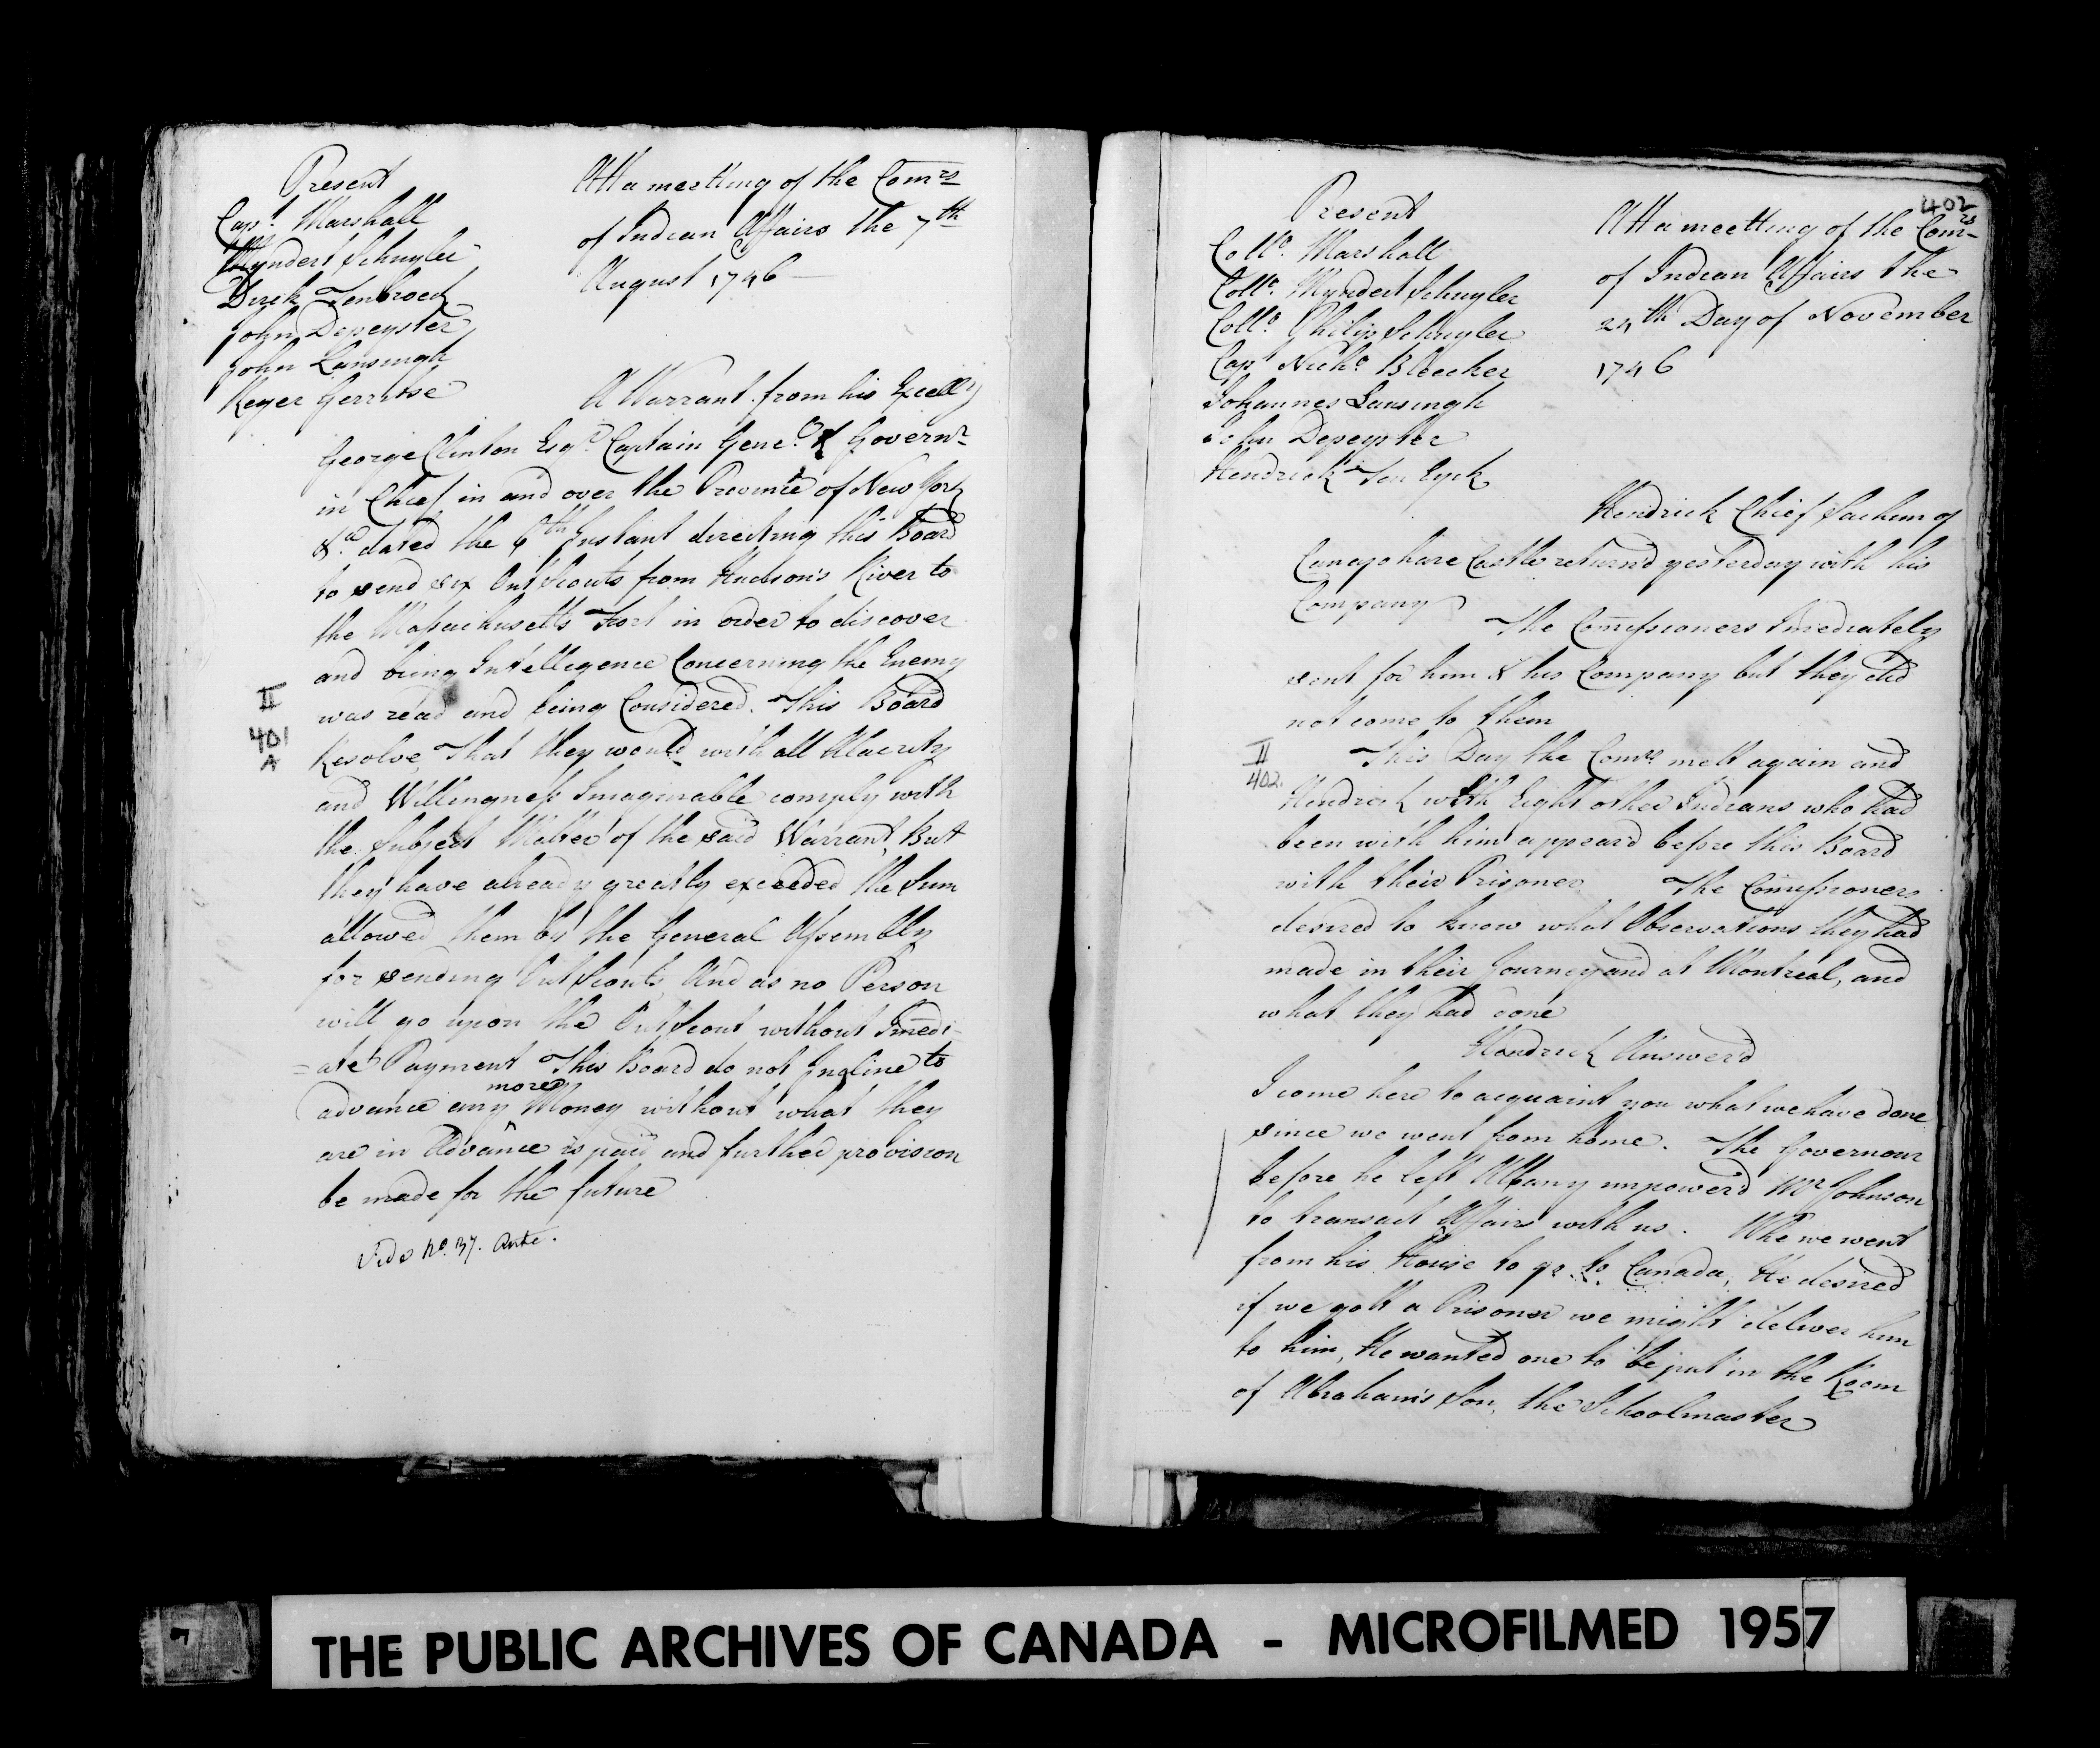 Present
Capt. Marshall
Myndert Schuyler
Dirck Tenbroeck
John Depeyster
John Lansingh
Reyer Gerritse
Att a meetting of the Comrs
of Indian Affairs the 7th
August 1746
A Warrant from his Excelly
George Clinton Esqr. Captain Genel. & Governr
in Chief in and over the Province of New York
&ca. dated the 6th Instant directing this Board
to send six Out Scouts from Hudson's River to
the Massachusetts Fort in order to discover
and bring Intelligence Concerning the Enemy
was read and being Considered. This Board
Resolve, That they would with all Alacrity
and Willingness Imaginable comply with
the Subject Matter of the said Warrant, But
they have already greatly exceeded the Sum
allowed them by the General Assembly
for sending Out Scouts, And as no Person
will go upon the Out Scout without Imedi-
=ate Payment This Board do not Incline to
more
advance any Money without what they
are in Advance is paid and further provision
be made for the future
Vide No. 37. Ante.
II
401
A
402
Present
Collo. Marshall
Collo. Myndert Schuyler
Collo. Philip Schuyler
Capt Nichs Bleecker
Johannes Lansingh
John Depeyster
Hendrick Ten Eyck
Att a meetting of the Comrs
of Indian Affairs the
24th Day of November
1746
Hendrick Chief Sachem of
Canajohare Castle return'd yesterday with his
Company
The Comissioners Imediately
sent for him & his Company but they did
not come to them
II
402.
This Day the Comrs. mett again and
Hendrick with Eight other Indians who had
been with him appear'd before this Board
with their Prisoner The Comissioners
desired to know what Observations they had
made in their Journey and at Montreal, and
what they had done
Hendrick Answer'd
I come here to acquaint you what we have done
since we went from home. The Governour
before he left Albany impowerd Mr Johnson
to transact Affairs with us. Whe we went
from his House to go to Canada, He desired
if we gott a Prisoner we might deliver him
to him, He wanted one to be put in the Room
of Abraham's Son, the Schoolmaster
THE PUBLIC ARCHIVES OF CANADA - MICROFILMED 1957